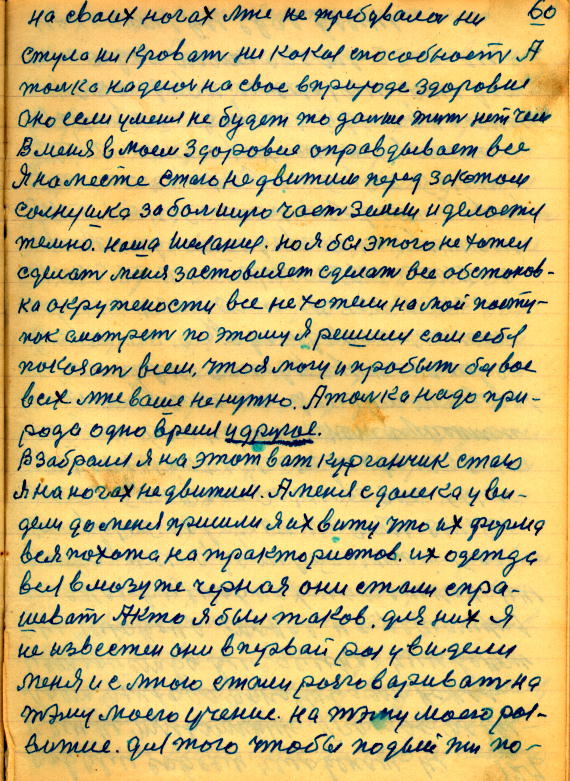 60
на своих ногах мне не требовался ни
стула ни кроват ни какая способност А
толка надеюс на свое вприроде здоровие
оно если уменя не будет то дальше жит нет чем
Вменя вмоем здоровие оправдывает все
Я на месте стаю недвижим перед закатом
солнушка забольшую част Земли и делается
темно. наша желание. но я бы этого не хотел
сделат меня заставляет сделат все обстанов-
ка окружености все не хотели на мой посту-
пок смотрет по этому Я решил сам себе
показат всем, что я могу и пробыт без вас
всех мне ваше не нужно. А толка надо при-
рода одно время и другое.
Взабрался я на этот ват курганчик стаю
Я на ногах недвижим. А меня сдалека уви-
дели до меня пришли я их вижу что их форма
вся похожа на трактористов. их одежда
вся в мазуте черная они стали спра-
шеват А кто я был таков. для них я
не известен они впервай раз увидели
меня и с мною стали розговариват на
тэму моего учение. на тэму моего раз-
витие. для того чтобы людьей жи по-